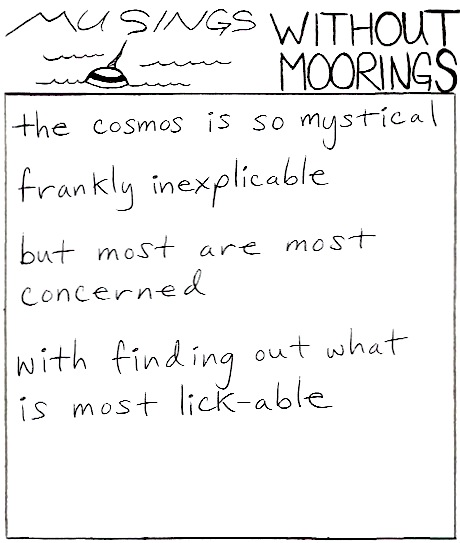 MUSINGS WITHOUT
MOORINGS
the cosmos is so mystical
frankly inexplicable
but most are most
concerned
with finding out what
is most lick-able